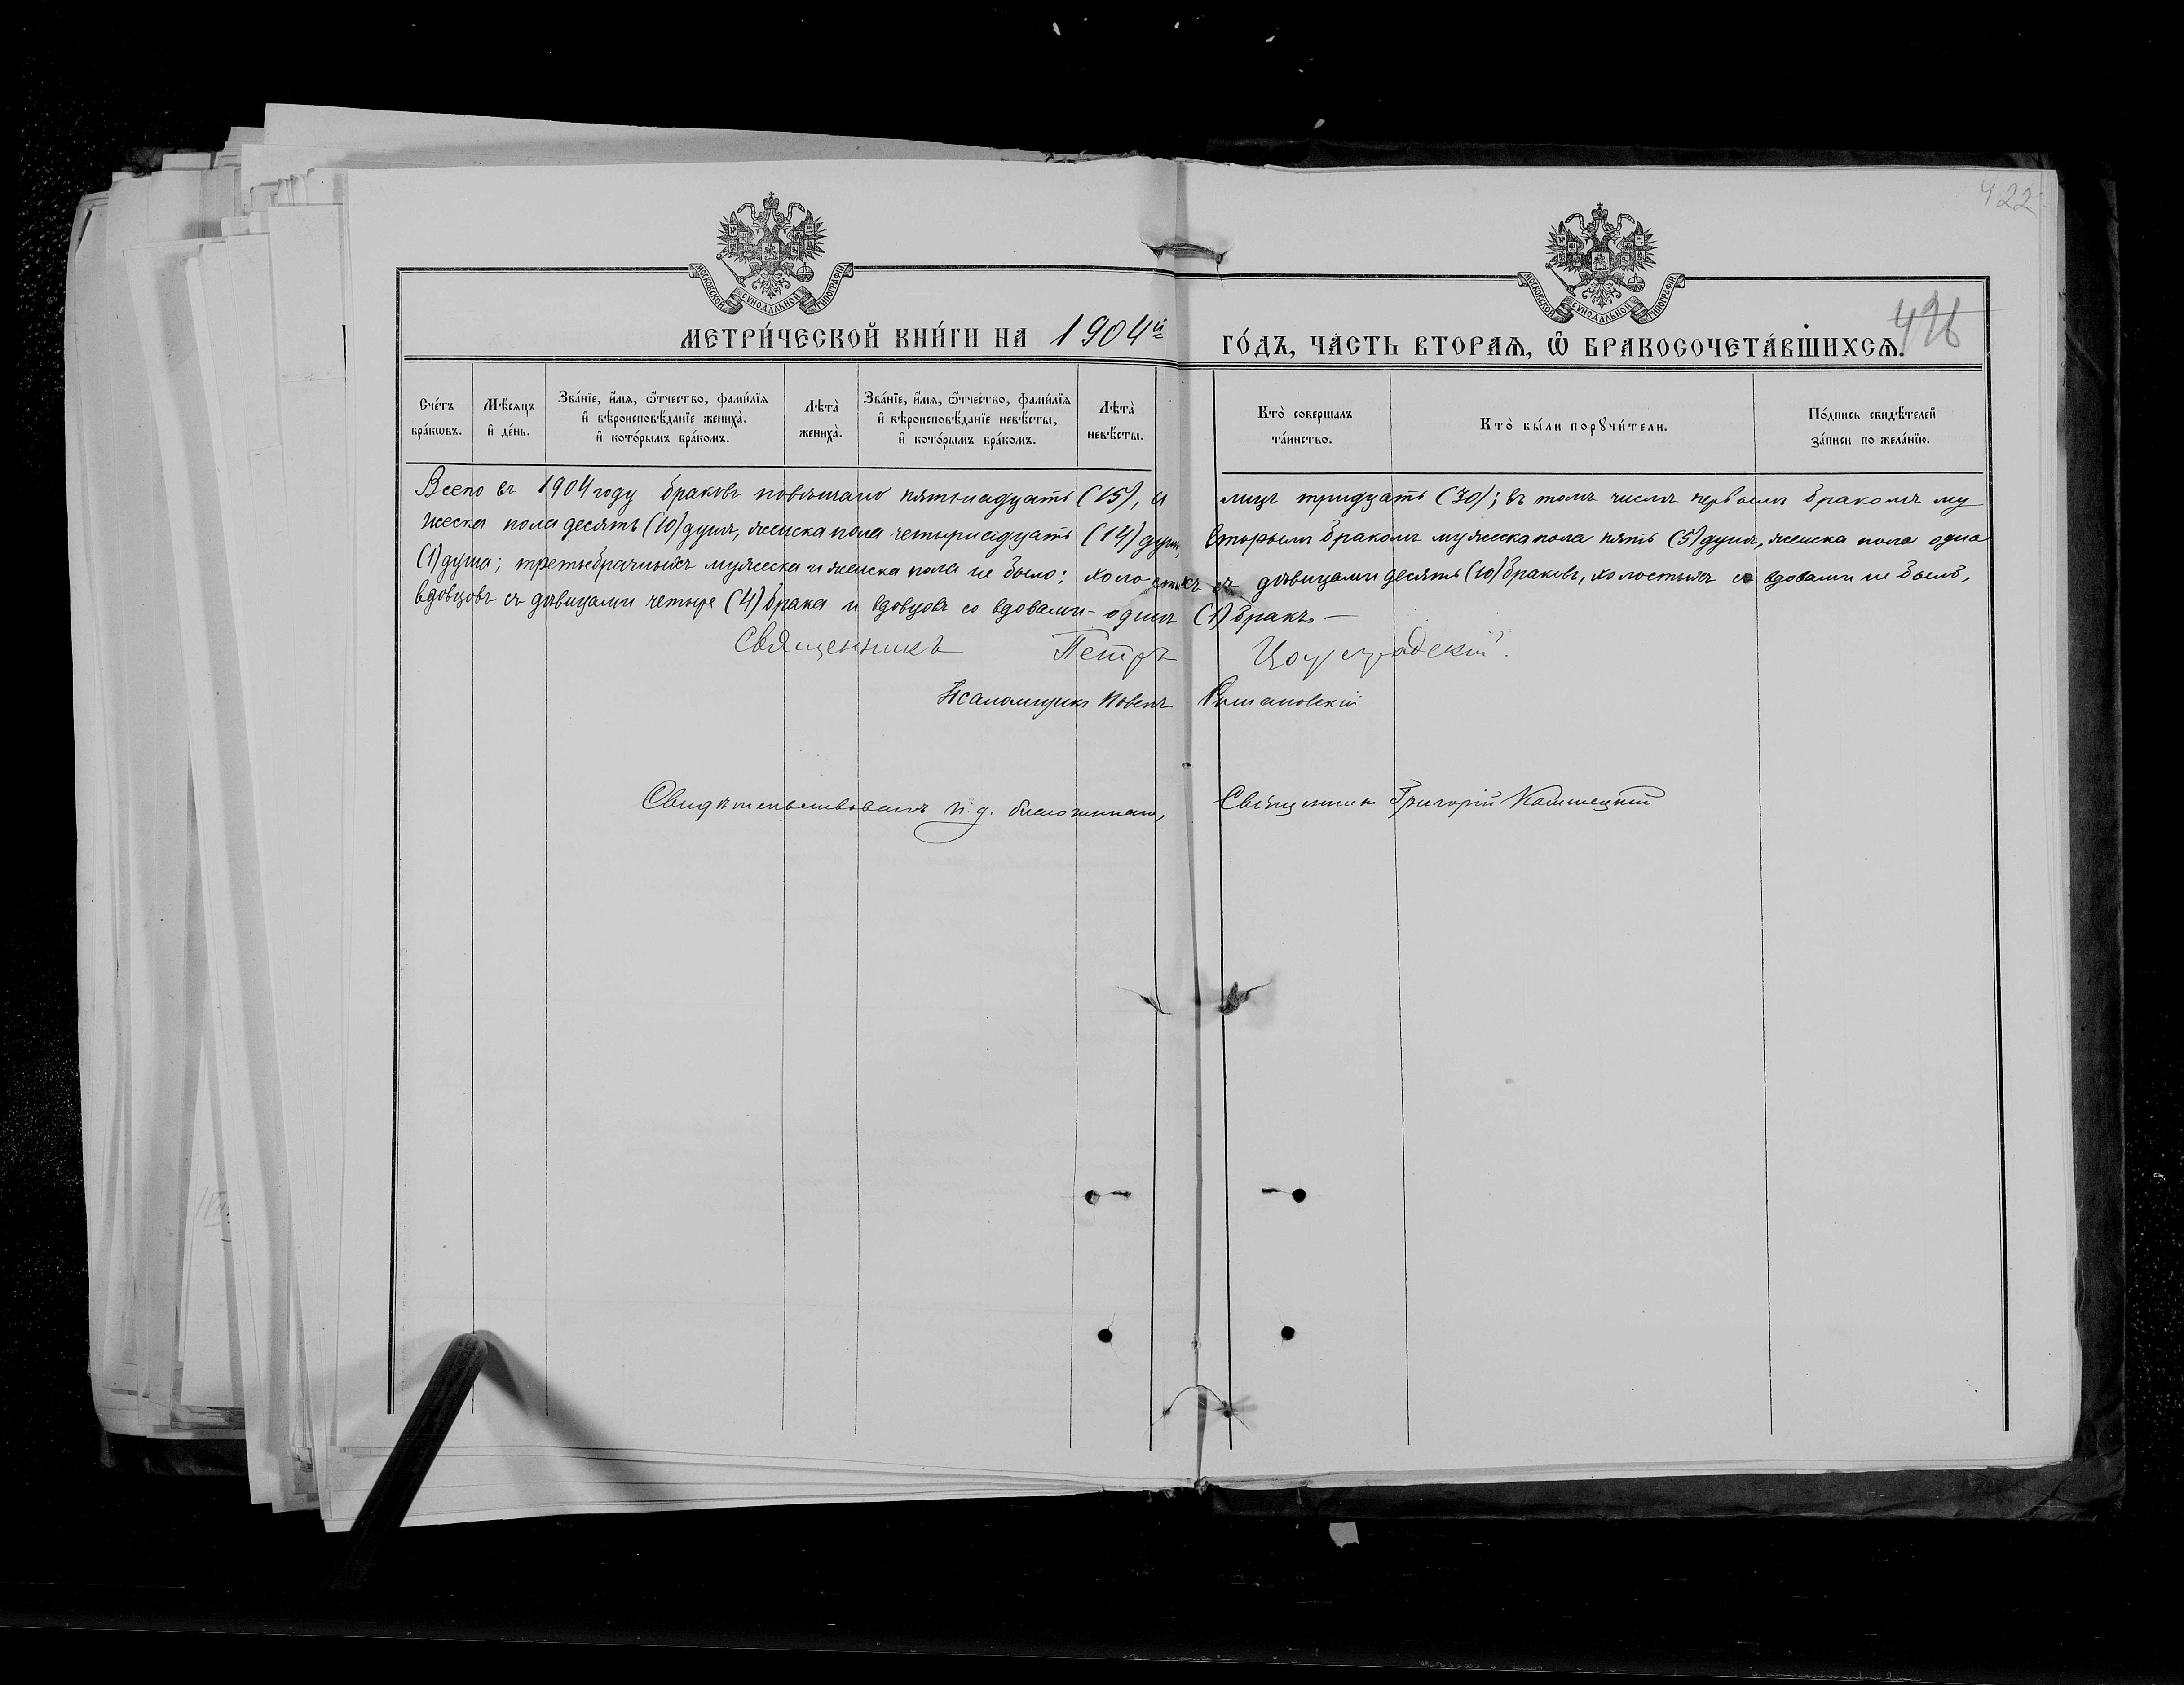 422
496
МОСКОВСКОЙ СѴНОДАЛЬНОЙ ТИПОГРАФІИ
МОСКОВСКОЙ СѴНОДАЛЬНОЙ ТИПОГРАФІИ
МЕТРИ́ЧЕСКОЙ КНИ́ГИ НА 1904й ГО́ДЪ, ЧА́СТЬ ВТОРАѦ, Ѽ БРАКОСОЧЕТА́ВШИХСѦ.
Сче́тъ бра́кѡвъ.
Мѣ́сяцъ и҆ де́нь.
Зва́нїе, и҆́мя, ѻ҆́тчество, фами́лїя и҆ вѣроисповѣ́данїе жениха̀. и҆ кото́рымъ бра́комъ.
Лѣта̀ жениха̀.
Зва́нїе, и҆́мя, ѻ҆́тчество, фами́лїя и҆ вѣроисповѣ́данїе невѣ́сты, и҆ кото́рымъ бра́комъ.
Лѣта̀ невѣ́сты.
Кто̀ соверша́лъ та́инство.
Кто̀ бы́ли порꙋчи́тели.
По́дпись свидѣ́телей за́писи по жела́нїю.
Всего въ 1904 году браковъ повѣнчано пятьнадцать (15), и лицъ тридцать (30); въ томъ числѣ первымъ бракомъ му
жеска пола десять (10) душъ, женска пола четырнадцать (14) душъ, вторымъ бракомъ мужеска пола пять (5) душъ, женска пола одна
(1) душа; третьебрачныхъ мужеска и женска пола не было; холостыхъ съ дѣвицами десять (10) браковъ, холостыхъ со вдовами не было,
вдовцовъ съ дѣвицами четыре (4) брака и вдовцовъ со вдовами - одинъ (1) бракъ. —
Священникъ Петръ
Псаломщикъ
Свидѣтельствовалъ и. д. благочиннаго, Священникъ Григорій